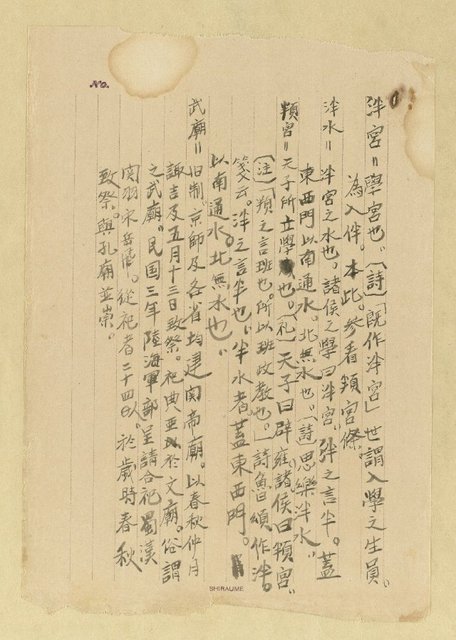 No.
泮宮＝學宮也。〔詩〕既作泮宮」世謂入學之生員。
為入泮。本此。參看頖宮條
泮水＝泮宮之水也。諸侯之學曰泮宮。泮之言半。蓋
東西門以南通水。北無水也。〔詩思樂泮水〕。
頖宮＝天子所立學也。〔礼〕天子曰辟雍。諸侯曰頖宮。
〔注〕「頖之言班也。所以班政教也。」詩魯頌作泮。
箋云。泮之言半也。半水者蓋東西門。
以南通水。北無水也。
武廟＝旧制。京師及各省均建関帝廟。以春秋仲月
諏吉及五月十三日致祭。祀典亞於文廟。俗謂
之武廟。民国三年陸海軍部呈請合祀蜀漢
関羽宋岳飛。從祀者二十四。以於歲時春秋
致祭。與孔廟並崇。
SHIRAUME